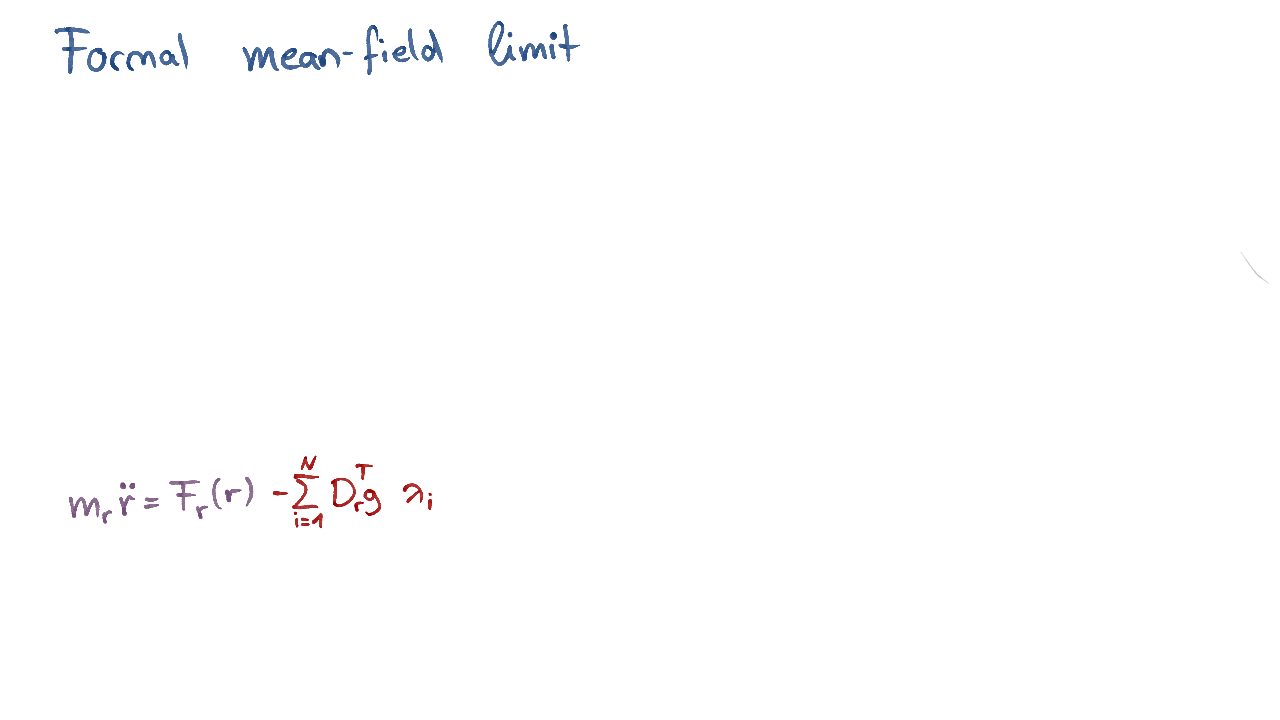 Formal mean-field limit
m_r r̈ = F_r(r) - \sum_{i=1}^{N} D_r^T g λ_i